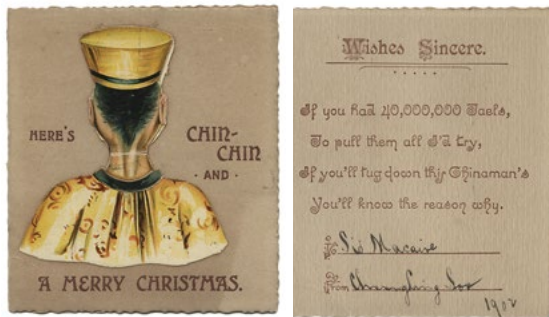 HERE'S
CHIN-
CHIN
· AND ·
A MERRY CHRISTMAS.
Wishes Sincere.
If you had 40,000,000 Taels,
To pull them all I'd try,
If you'll tug down this Chinaman's
You'll know the reason why.
To
From Chung Ling Soo
1902